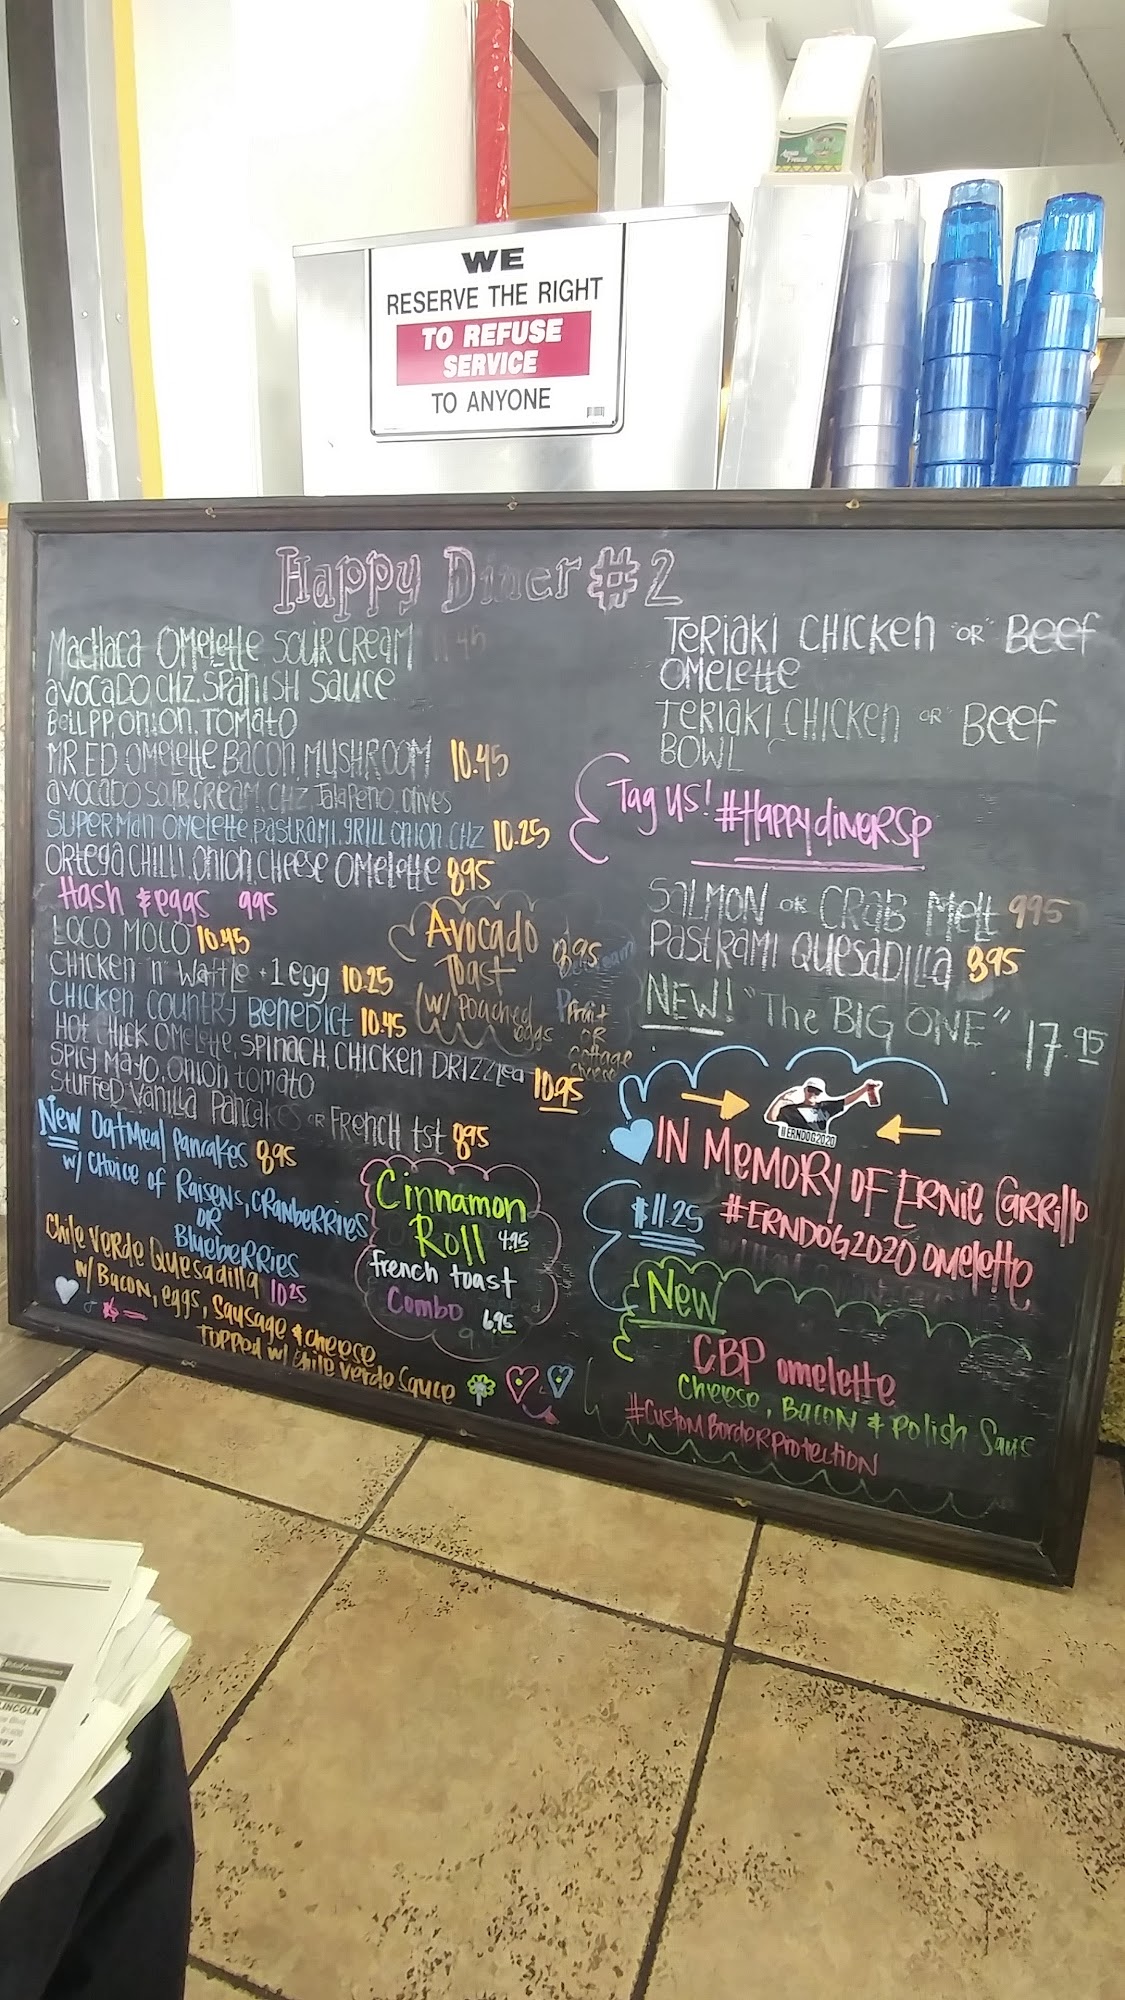 WE
RESERVE THE RIGHT
TO REFUSE
SERVICE
TO ANYONE
Happy Diner #2
Machaca Omelette Sour Cream 11.45
avocado, chz, Spanish Sauce
Bell pp, onion, Tomato
MR ED Omelette Bacon, Mushroom 10.45
avocado sour cream, chz, Jalapeno, olives
Superman Omelette, Pastrami, grill onion, chz 10.25
Ortega Chilli, Onion, Cheese Omelette 895
Hash & eggs 995
Loco Moco 10.45
Chicken "n" Waffle +1 egg 10.25
Chicken Country Benedict 10.45
Hot Chick Omelette, Spinach, Chicken Drizzled
Spicy Mayo, Onion tomato 10.95
Stuffed Vanilla Pancakes or French tst 895
New Oatmeal Pancakes 895
w/ choice of Raisens, Cranberries
OR
Blueberries
Chile Verde Quesadilla 1025
w/ Bacon, eggs, Sausage & Cheese
Topped w/ Chile Verde Sauce
Avocado 895
Toast
(w/ Poached
eggs
Fruit
OR
Cottage
Cheese
Cinnamon
Roll 4.95
french toast
Combo 6.95
Teriaki Chicken "or" Beef
Omelette
Teriaki Chicken "or" Beef
Bowl
Tag us! #HappydinerSP
Salmon or Crab Melt 995
Pastrami Quesadilla 895
New! "The Big One" 17.95
#ERNDOG2020
In Memory of Ernie Carrillo
$11.25 #ERNDOG2020 omelette
New
CBP omelette
Cheese, Bacon & Polish Saus
#CustomBorderProtection
LINCOLN